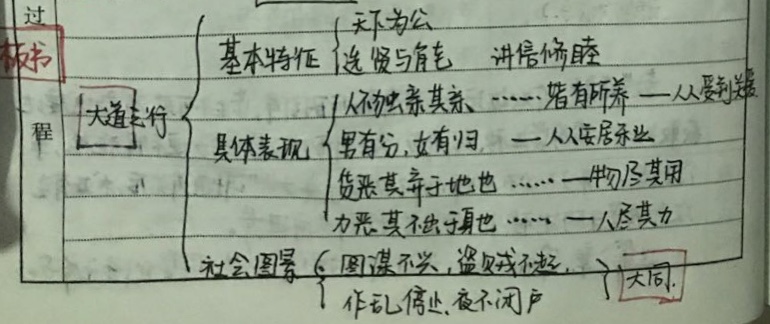 过
程
板书
大道之行
基本特征
天下为公
选贤与能 讲信修睦
具体表现
人不独亲其亲、……皆有所养 — 人人受到关爱
男有分,女有归 — 人人安居乐业
货恶其弃于地也 …… — 物尽其用
力恶其不出于身也 …… — 人尽其力
社会图景
图谋不兴,盗贼不起,
作乱停止,夜不闭户
大同.